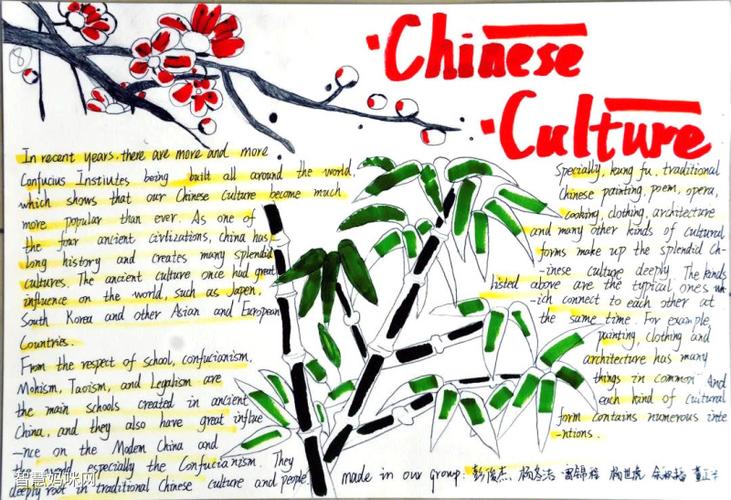 8
Chinese
Culture
In recent years, there are more and more
Confucius Instiutes being built all around the world,
which shows that our Chinese Culture become much
more popular than ever. As one of
the four ancient civilizations, China has
long history and creates many splendid
cultures. The ancient culture once had great
influence on the world, such as Japen,
South Korea and other Asian and European
Countries.
From the respect of school, confucianism,
Mohism, Taoism, and Legalism are
the main schools created in ancient
China, and they also have great influe
-nce on the Modern China and
the world, especially the Confucianism. They
deeply root in traditional Chinese culture and people.
Specially, kung fu, traditional
Chinese painting, poem, opera,
cooking, clothing, architecture
and many other kinds of cultural
forms make up the splendid Ch-
-inese culture deeply. The kinds
listed above are the typical ones wh
-ich connect to each other at
the same time. For example,
painting, clothing and
architecture has many
things in common. And
each kind of cultural
form contains numerous inte
-ntions.
made in our group:
智慧妈咪网